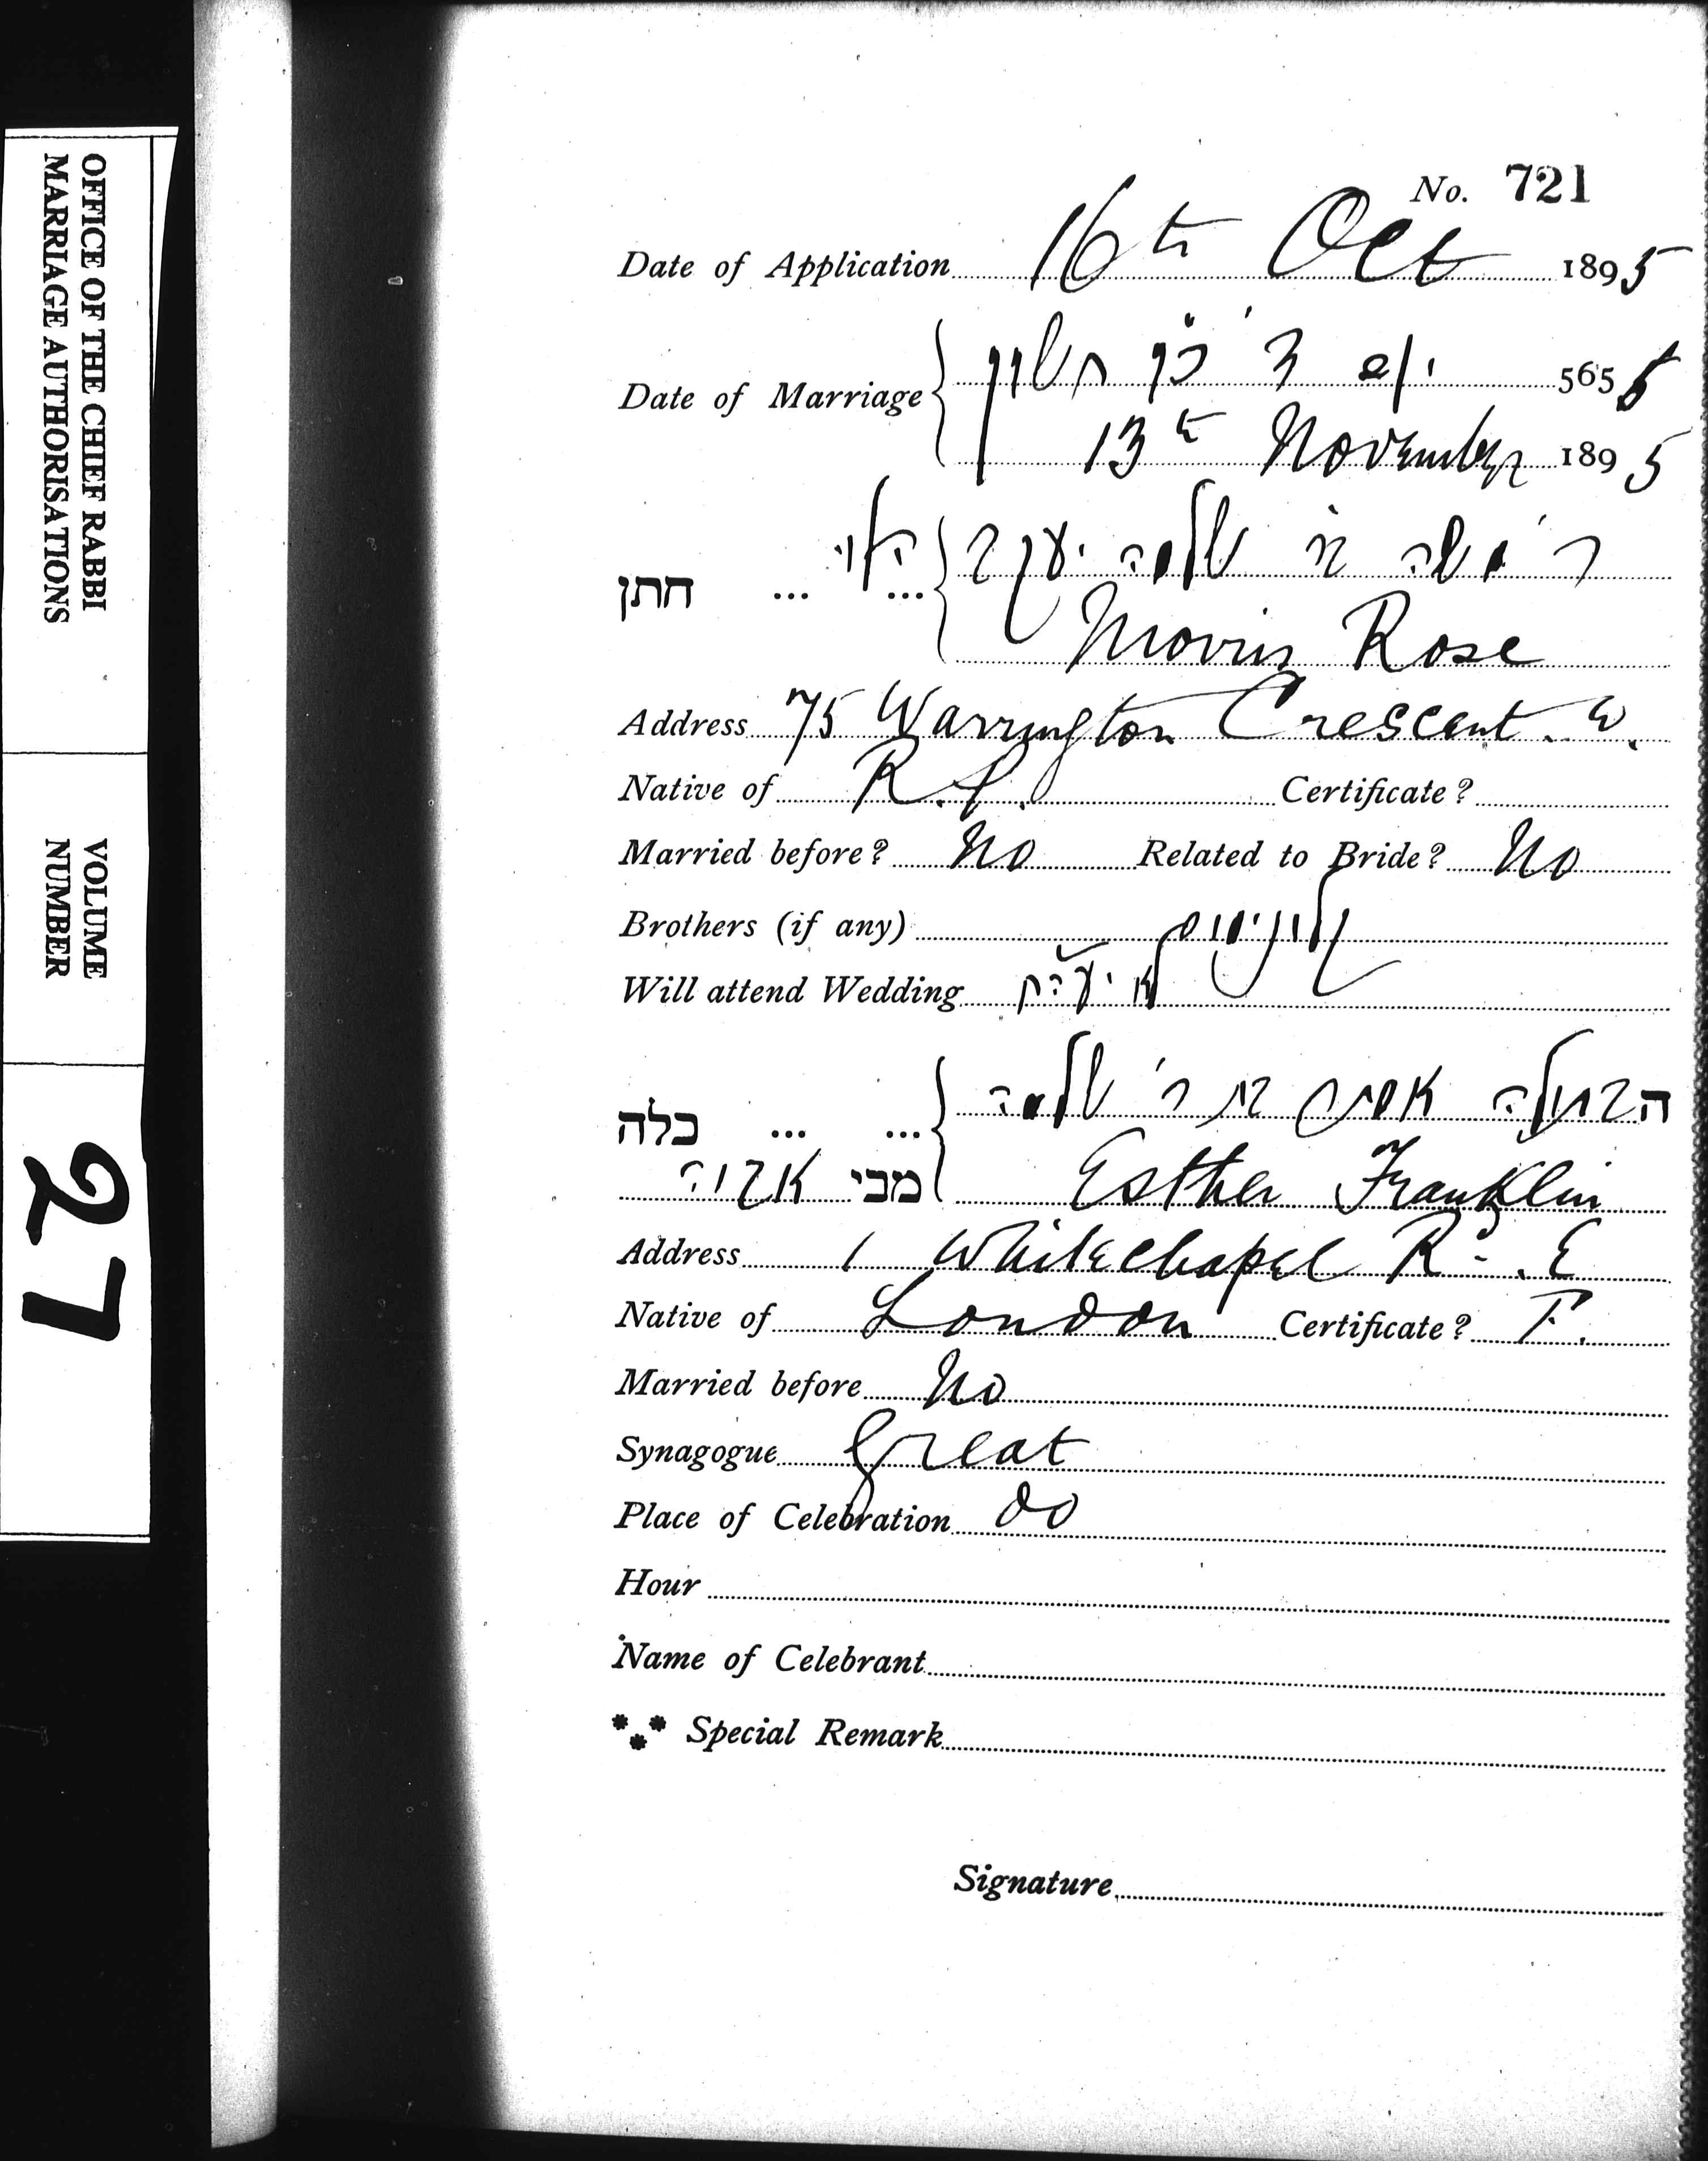 OFFICE OF THE CHIEF RABBI
MARRIAGE AUTHORISATIONS
VOLUME
NUMBER
27
No. 721
Date of Application 16th Oct 1895
Date of Marriage יום ד' כ"ו חשון 5656
13th November 1895
חתן ... ... ר' משה בר' שלמה יעקב הלוי
Morris Rose
Address 75 Warrington Crescent. W.
Native of R. P. Certificate?
Married before? No Related to Bride? No
Brothers (if any) קלונימוס
Will attend Wedding לא
כלה ... ... הבתולה אסתר בת ר' שלמה
מבי אבוה Esther Franklin
Address 1 Whitechapel Rd. E
Native of London Certificate? F.
Married before No
Synagogue Great
Place of Celebration do
Hour
Name of Celebrant
*** Special Remark
Signature